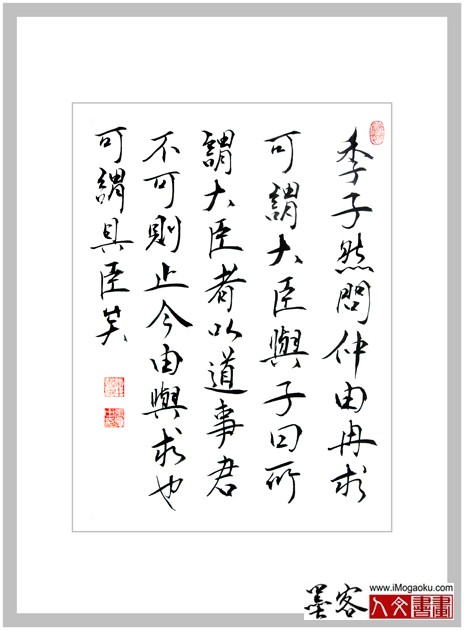 季子然問仲由冉求
可謂大臣與子曰所
謂大臣者以道事君
不可則止今由與求也
可謂具臣矣
墨客
www.iMogaoku.com
人文書畫